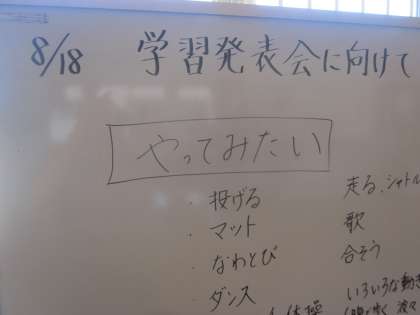 8/18 学習発表会に向けて
やってみたい
・投げる 走る、シャトル
・マット 歌
・なわとび 合そう
・ダンス いろいろな動き
体操